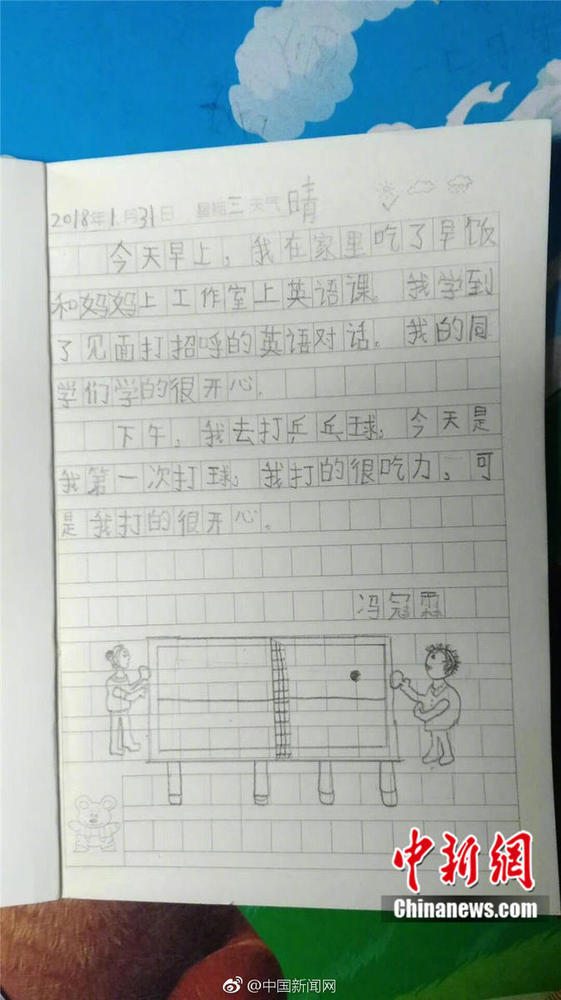 2018年1月31日 星期三 天气晴
今天早上，我在家里吃了早饭
和妈妈上工作室上英语课。我学到
了见面打招呼的英语对话。我的同
学们学的很开心。
下午，我去打乒乓球，今天是
我第一次打球，我打的很吃力，可
是我打的很开心。
冯冠霖
中新網
Chinanews.com
@中国新闻网